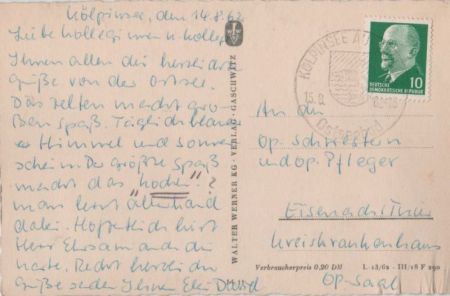 Kölpinsee, den 14.8.62
Liebe Kolleginnen u. Kollegen
Ihnen allen die herzlichst
Grüße von der Ostsee.
Das zelten macht gro-
ßen Spaß. Täglich blauer
Himmel und Sonnen
schein. Der größte Spaß
macht das "kochen"?
man lernt allerhand
dabei. Hoffentlich hört
Herr Ehrsam auch die
Karte. Recht herzliche
Grüße sendet Ihnen
WALTER WERNER KG · VERLAG · GASCHWITZ
KÖLPINSEE
15.8.
DEUTSCHE
DEMOKRATISCHE REPUBLIK
10
An die
Op. Schwestern
und Op. Pfleger
Eisenach/Thür
Kreiskrankenhaus
Op-Saal
Verbraucherpreis 0,20 DM
L 13/62 - III/18 F 290